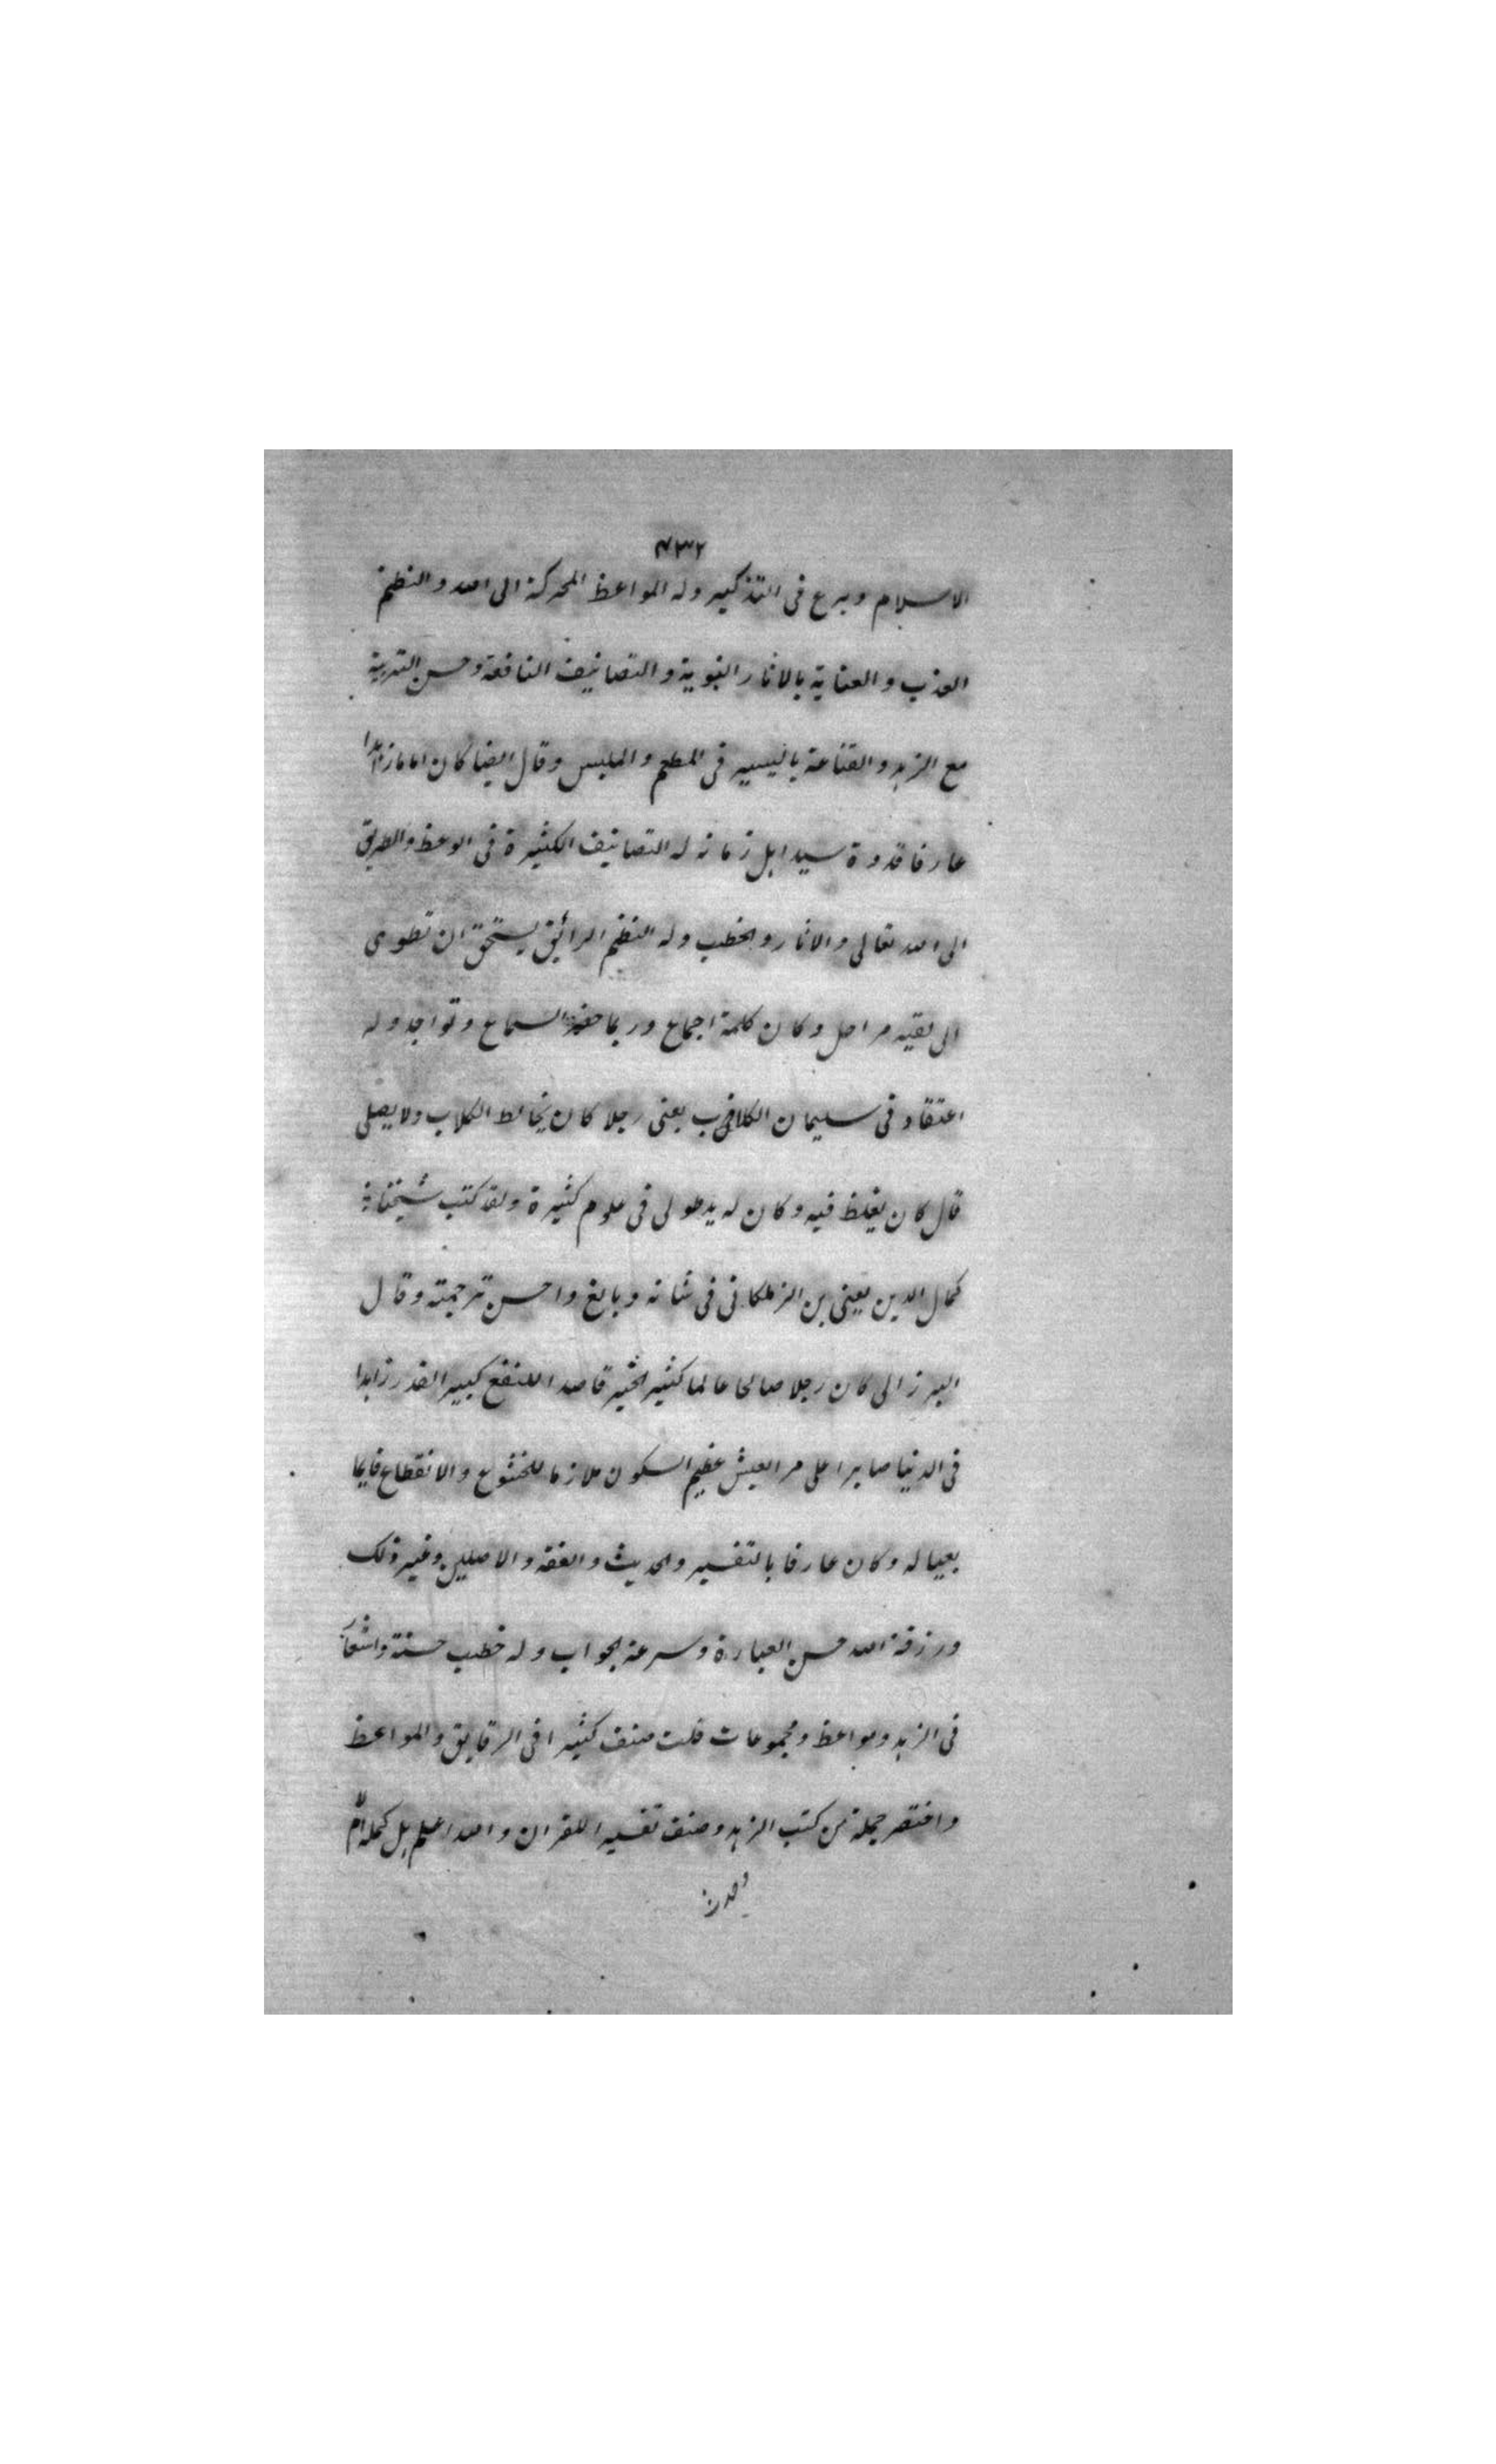 ٧٣٢
الاسلام وبرع فى التذكير وله المواعظ المحركة الى الله والنظم
العذب والعناية بالاثار النبوية والتصانيف النافعة وحسن التربية
مع الزهد والقناعة باليسير فى المطعم والملبس وقال ايضا كان اماما زاهدا
عارفا قدوة سيد اهل زمانه له التصانيف الكثيرة فى الوعظ والطريق
الى الله تعالى والاثار والخطب وله النظم الرائق يستحق ان تطوى
الى لقيه مراحل وكان كلمة اجماع وربما حضر السماع وتواجد وله
اعتقاد فى سليمان الكلاب يعنى رجلا كان يخالط الكلاب ولا يصلى
قال كان يغلظ فيه وكان له يد طولى فى علوم كثيرة ولقد كتب شيخنا
كمال الدين يعنى بن الزملكانى فى شانه وبالغ واحسن ترجمته وقال
البرزالى كان رجلا صالحا عالما كثير الخير قاصدا للنفع كبير القدر زاهدا
فى الدنيا صابرا على مر العيش عظيم السكون ملازما للخشوع والانقطاع قايما
بعياله وكان عارفا بالتفسير والحديث والفقه والاصلين وغير ذلك
ورزقه الله حسن العبارة وسرعة الجواب وله خطب حسنة واشعار
فى الزهد ومواعظ ومجموعات قلت صنف كثيرا فى الرقايق والمواعظ
واختصر جملة من كتب الزهد وصنف تفسيرا للقران والله اعلم بل كمله ام